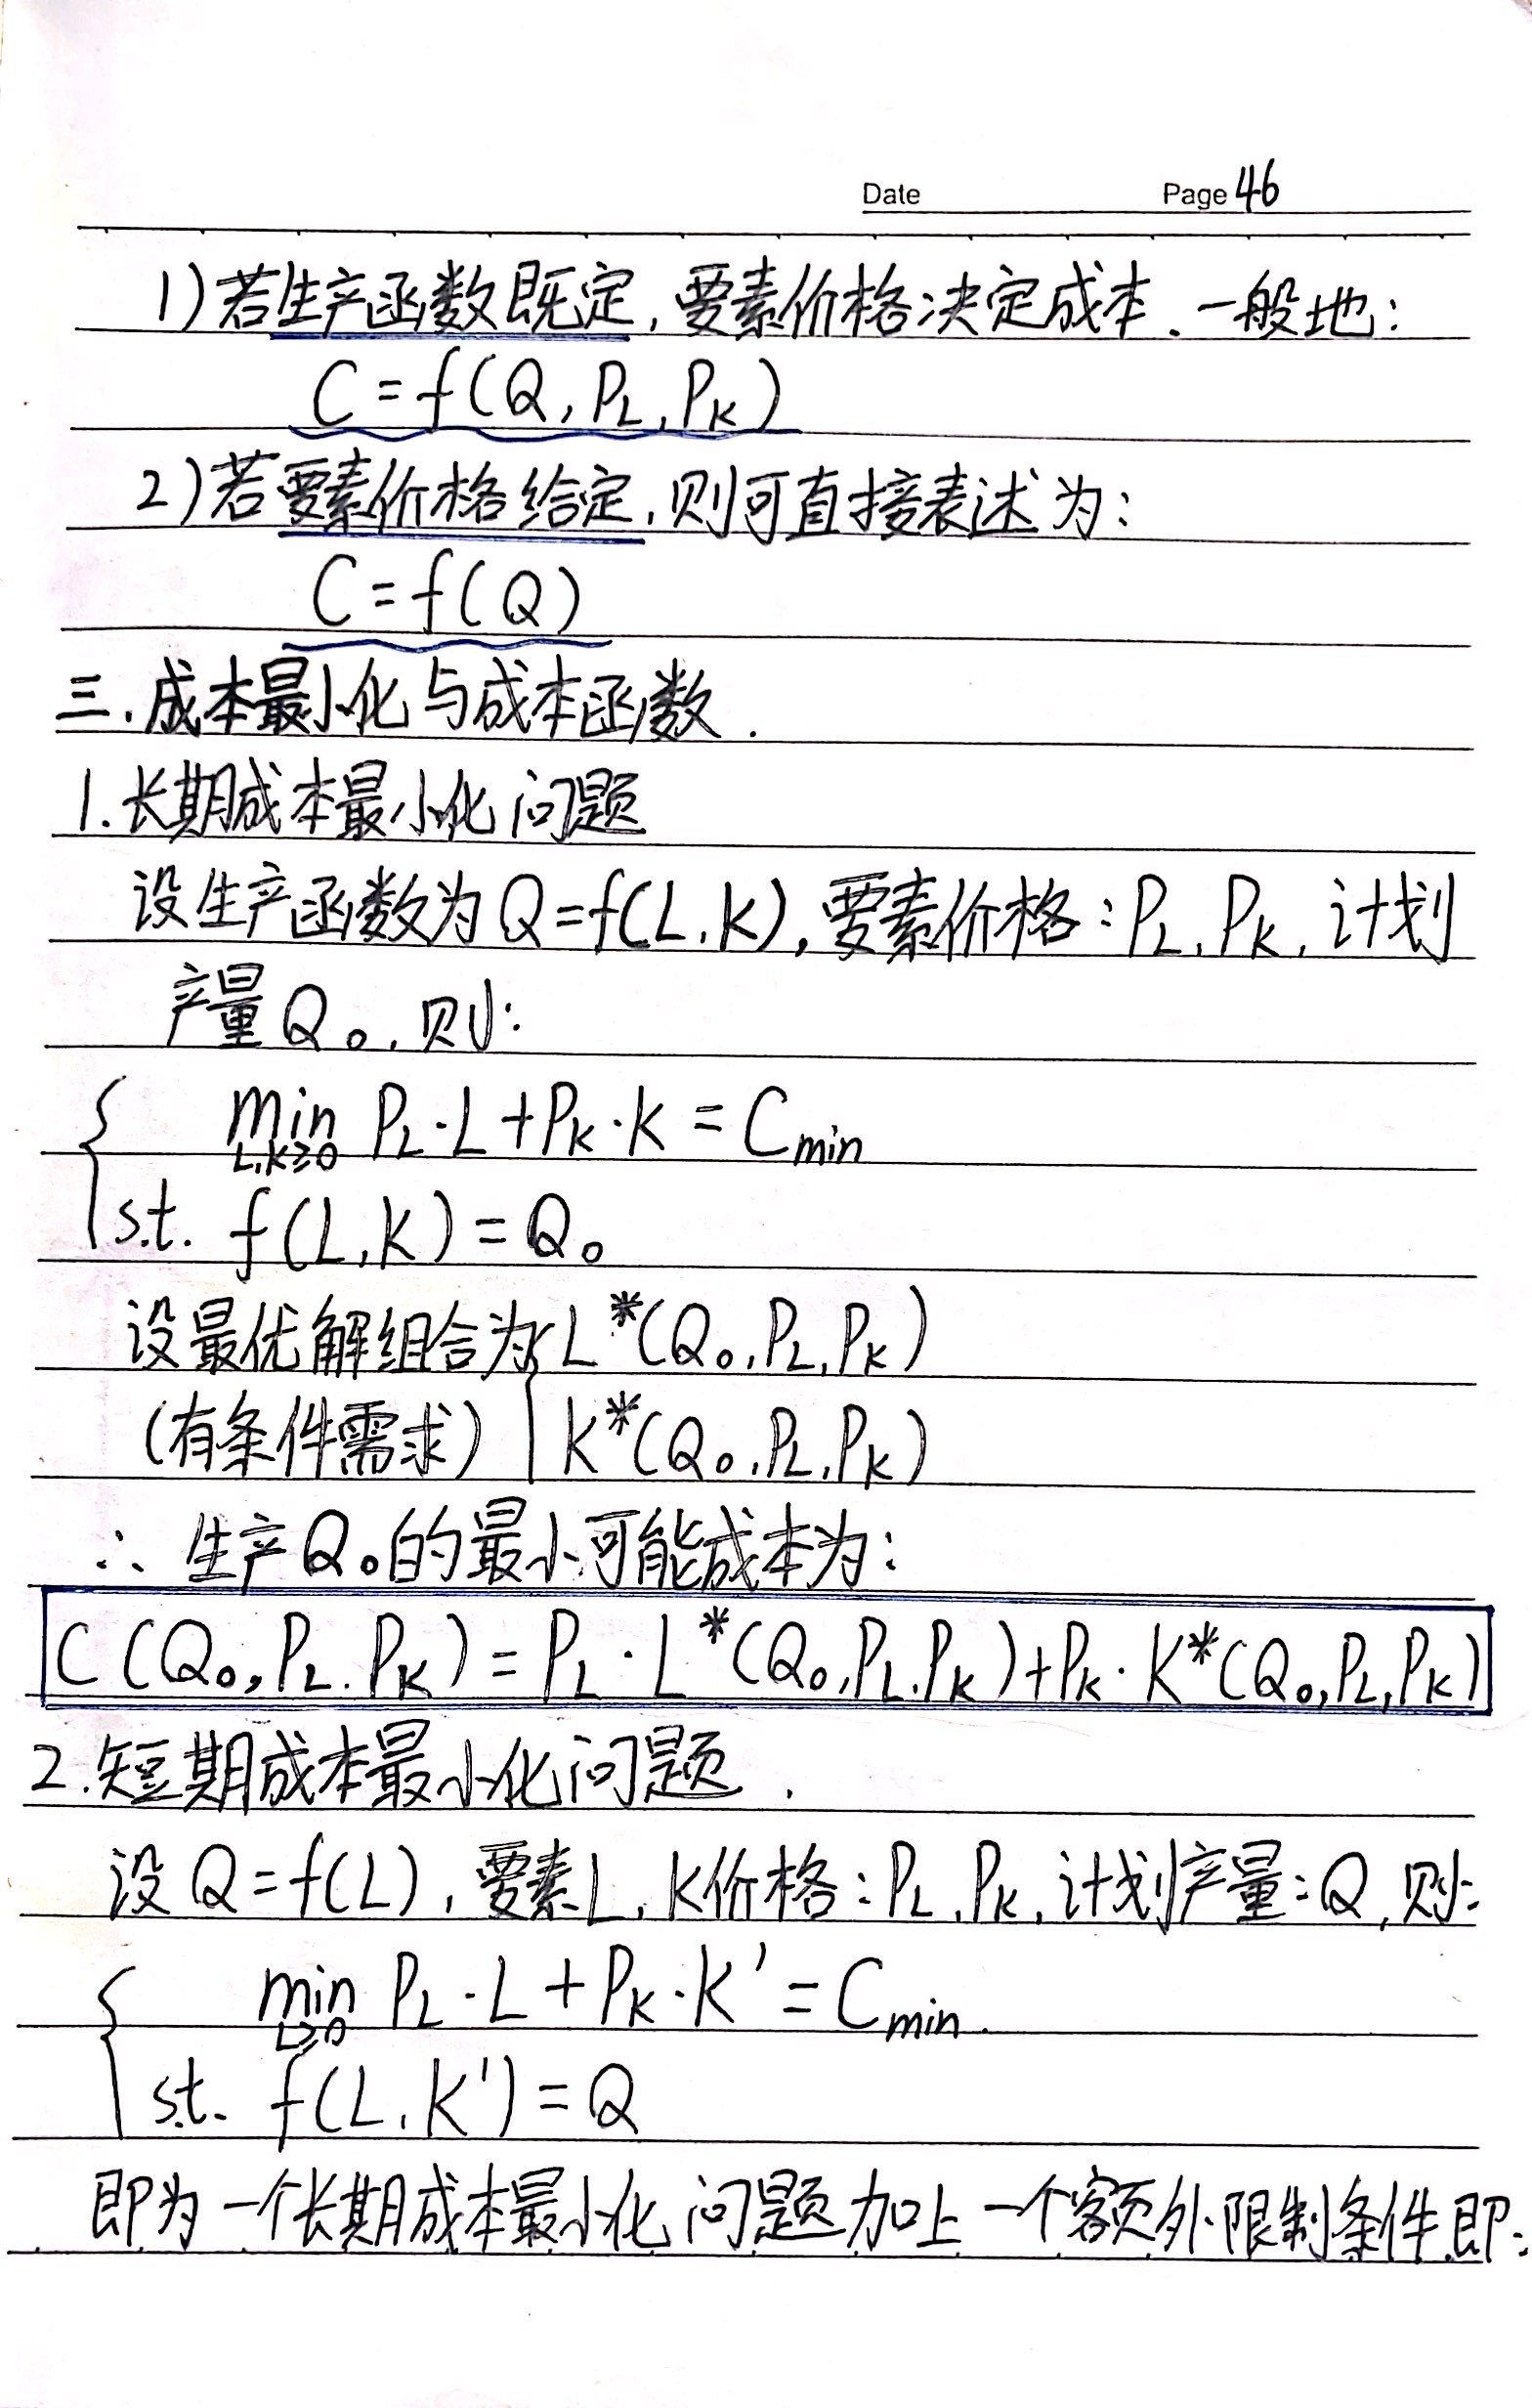 Date Page 46
1)若生产函数既定,要素价格决定成本.一般地:
C=f(Q,P_L,P_K)
2)若要素价格给定,则可直接表述为:
C=f(Q)
三.成本最小化与成本函数.
1.长期成本最小化问题
设生产函数为Q=f(L,K),要素价格:P_L,P_K,计划
产量Q₀,则:
{ min_{L,K≥0} P_L·L+P_K·K=C_min
s.t. f(L,K)=Q₀
设最优解组合为{L*(Q₀,P_L,P_K)
(有条件需求) K*(Q₀,P_L,P_K)
∴ 生产Q₀的最小可能成本为:
C(Q₀,P_L,P_K)=P_L·L*(Q₀,P_L,P_K)+P_K·K*(Q₀,P_L,P_K)
2.短期成本最小化问题.
设Q=f(L),要素L,K价格:P_L,P_K,计划产量:Q,则:
{ min_{L≥0} P_L·L+P_K·K'=C_min.
s.t. f(L,K')=Q
即为一个长期成本最小化问题加上一个额外限制条件.即: